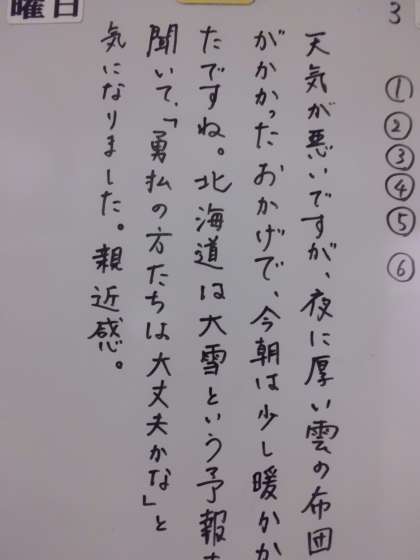 曜日
3
①
②
③
④
⑤
⑥
天気が悪いですが、夜に厚い雲の布団
がかかったおかげで、今朝は少し暖かか
たですね。北海道は大雪という予報
聞いて、「勇払の方たちは大丈夫かな」と
気になりました。親近感。